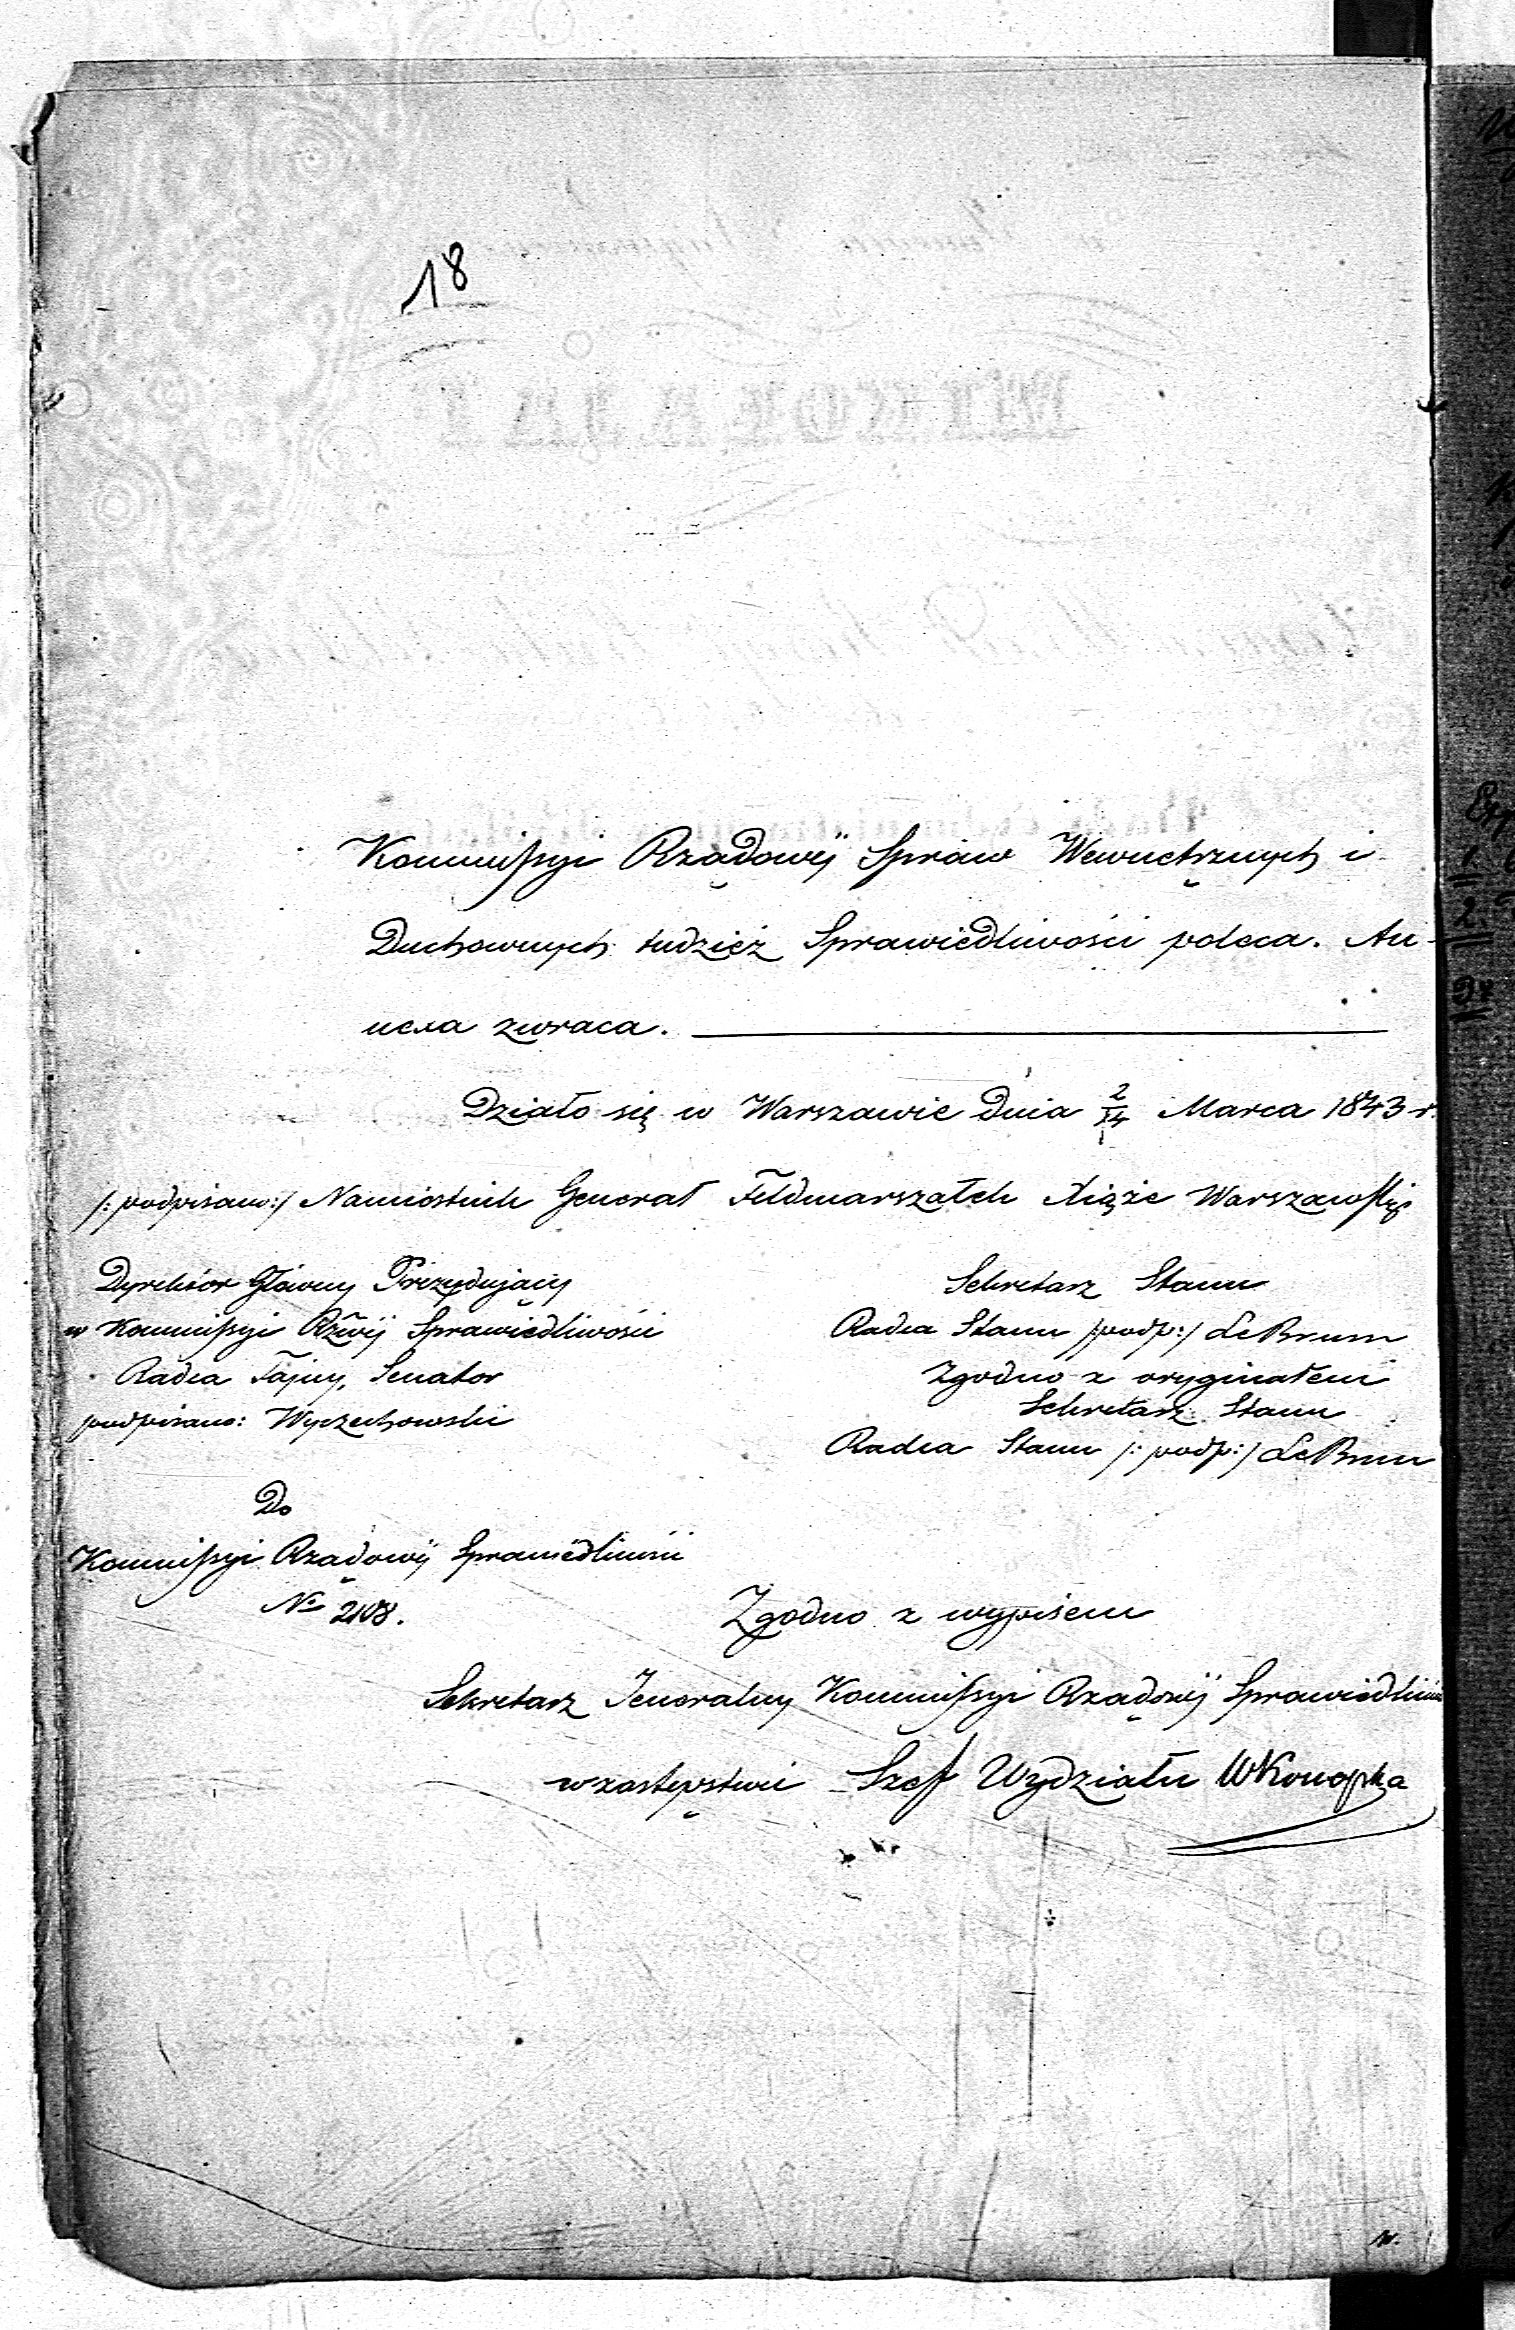 18
Kommissyi Rządowéj Spraw Wewnętrznych i
Duchownych tudzież Sprawiedliwości poleca. An-
nexa zwraca.
Działo się w Warszawie dnia 2/14 Marca 1843 r.
/: podpisano:/ Namiestnik Generał Feldmarszałek Xiąże Warszawski
Dyrektor Główny Prezydujący
w Kommissyi Rzwéj Sprawiedliwości
Radca Tajny, Senator
podpisano: Wyczechowski
Sekretarz Stanu
Radca Stanu /podp:/ LeBrun
Zgodno z oryginałem
Sekretarz Stanu
Radca Stanu /: podp:/ LeBrun
Do
Kommissyi Rządowéj Sprawiedliwości
Zgodno z wypisem
Sekretarz Jeneralny Kommissyi Rządowéj Sprawiedliwości
w zastępstwie Szef Wydziału WKonopka